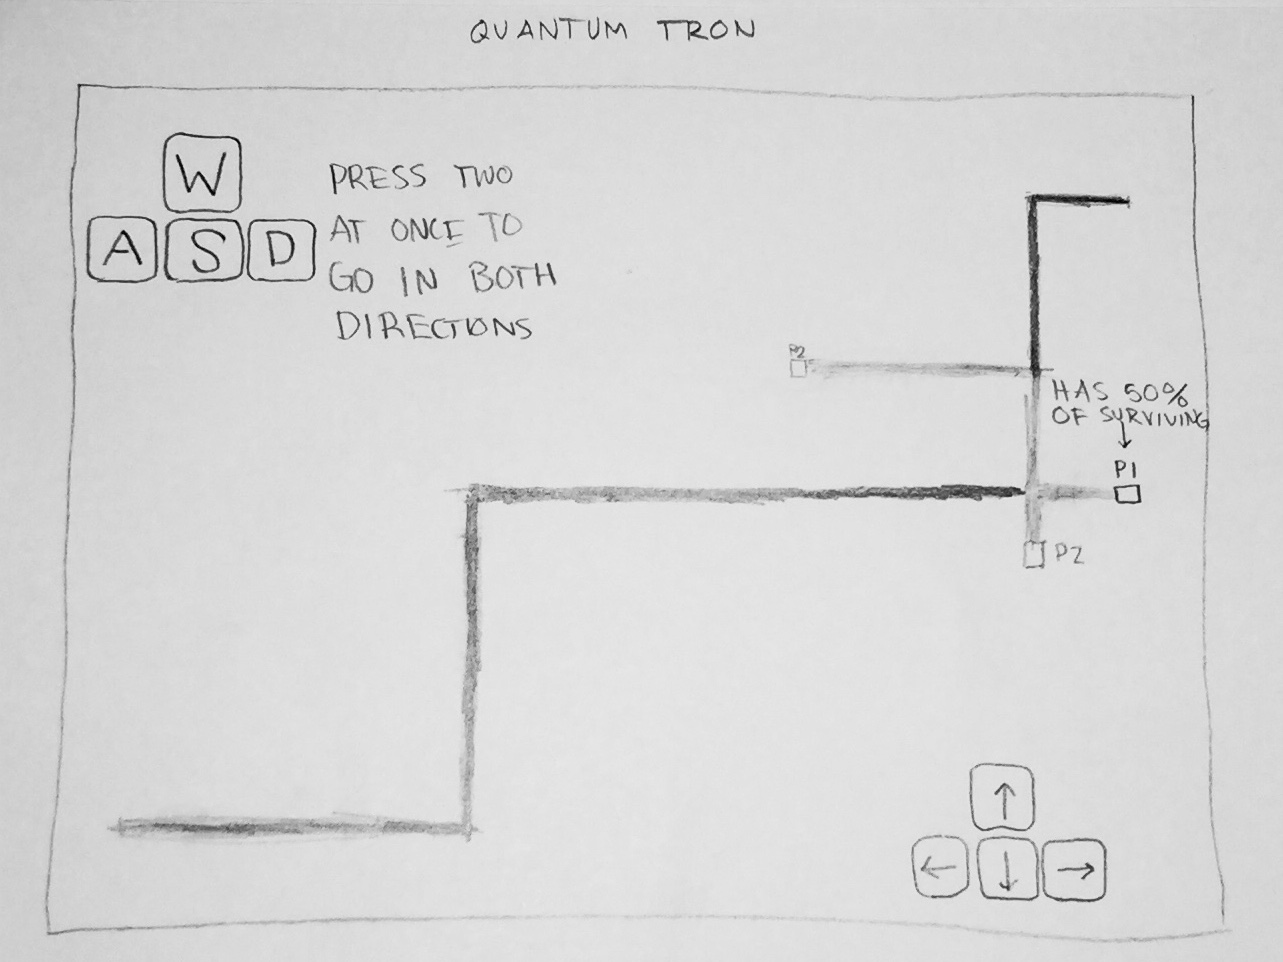 QUANTUM TRON
W
A S D
PRESS TWO
AT ONCE TO
GO IN BOTH
DIRECTIONS
P2
HAS 50%
OF SURVIVING
P1
P2
↑
← ↓ →